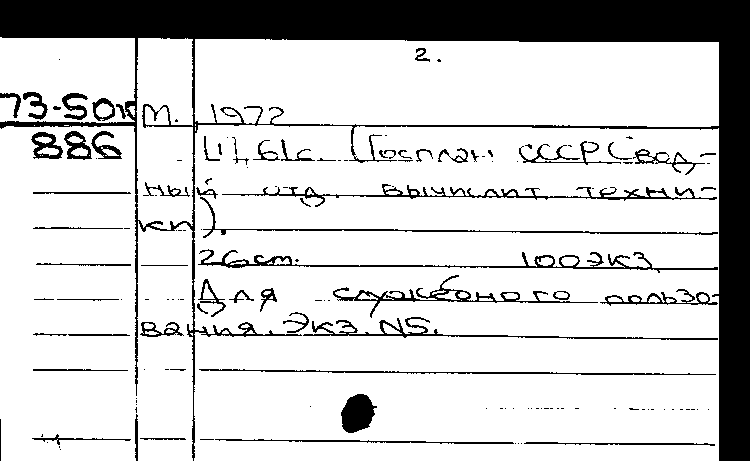 2.
73-50к М. 1972
886 [1], 61с. (Госплан СССР Свод-
ный отд. вычислит. техни-
ки).
26см. 100экз.
Для служебного пользо-
вания. Экз. N5.